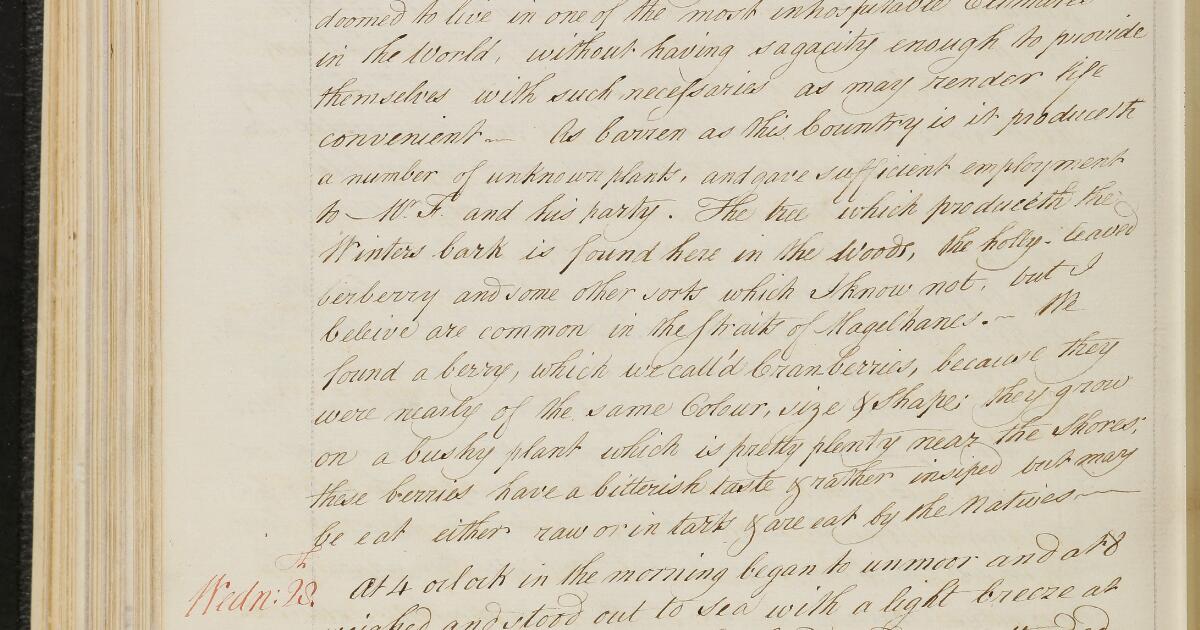 doomed to live in one of the most inhospitable Climates
in the World, without having sagacity enough to provide
themselves with such necessaries as may render life
convenient — As barren as this Country is it produceth
a number of unknown plants, and gave sufficient employment
to Mr. F. and his party. The tree which produceth the
Winters bark is found here in the Woods, the holly-leaved
berberry and some other sorts which I know not, but I
beleive are common in the straits of Magelhanes. — We
found a berry, which we call'd Cranberries, because they
were nearly of the same Colour, size & Shape; they grow
on a bushy plant which is pretty plenty near the Shores;
these berries have a bitterish taste & rather insiped but may
be eat either raw or in tarts & are eat by the Natives —
Wedn: 28.th At 4 oclock in the morning began to unmoor and at 8
weighed and stood out to sea with a light breeze at